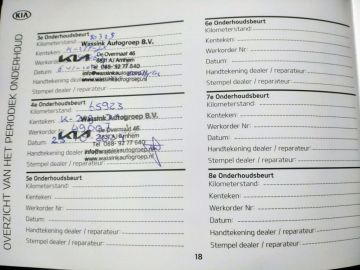 KIA
OVERZICHT VAN HET PERIODIEK ONDERHOUD
3e Onderhoudsbeurt
Kilometerstand:
Kenteken:
Werkorder Nr:
Datum:
Handtekening dealer
Stempel dealer / reparateur
Wassink Autogroep B.V.
KIA
De Overmaat 46
6831 AJ Arnhem
Tel 088- 92 77 640
info@wassinkautogroep.nl
www.wassinkautogroep.nl
4e Onderhoudsbeurt
Kilometerstand: 65923
Kenteken:
Werkorder Nr:
Datum:
Handtekening dealer
Stempel dealer / reparateur
Wassink Autogroep B.V.
KIA
De Overmaat 46
6831 AJ Arnhem
Tel 088- 92 77 640
info@wassinkautogroep.nl
www.wassinkautogroep.nl
5e Onderhoudsbeurt
Kilometerstand:
Kenteken:
Werkorder Nr:
Datum:
Handtekening dealer / reparateur:
Stempel dealer / reparateur:
6e Onderhoudsbeurt
Kilometerstand:
Kenteken:
Werkorder Nr:
Datum:
Handtekening dealer / reparateur:
Stempel dealer / reparateur:
7e Onderhoudsbeurt
Kilometerstand:
Kenteken:
Werkorder Nr:
Datum:
Handtekening dealer / reparateur:
Stempel dealer / reparateur:
8e Onderhoudsbeurt
Kilometerstand:
Kenteken:
Werkorder Nr:
Datum:
Handtekening dealer / reparateur:
Stempel dealer / reparateur:
18